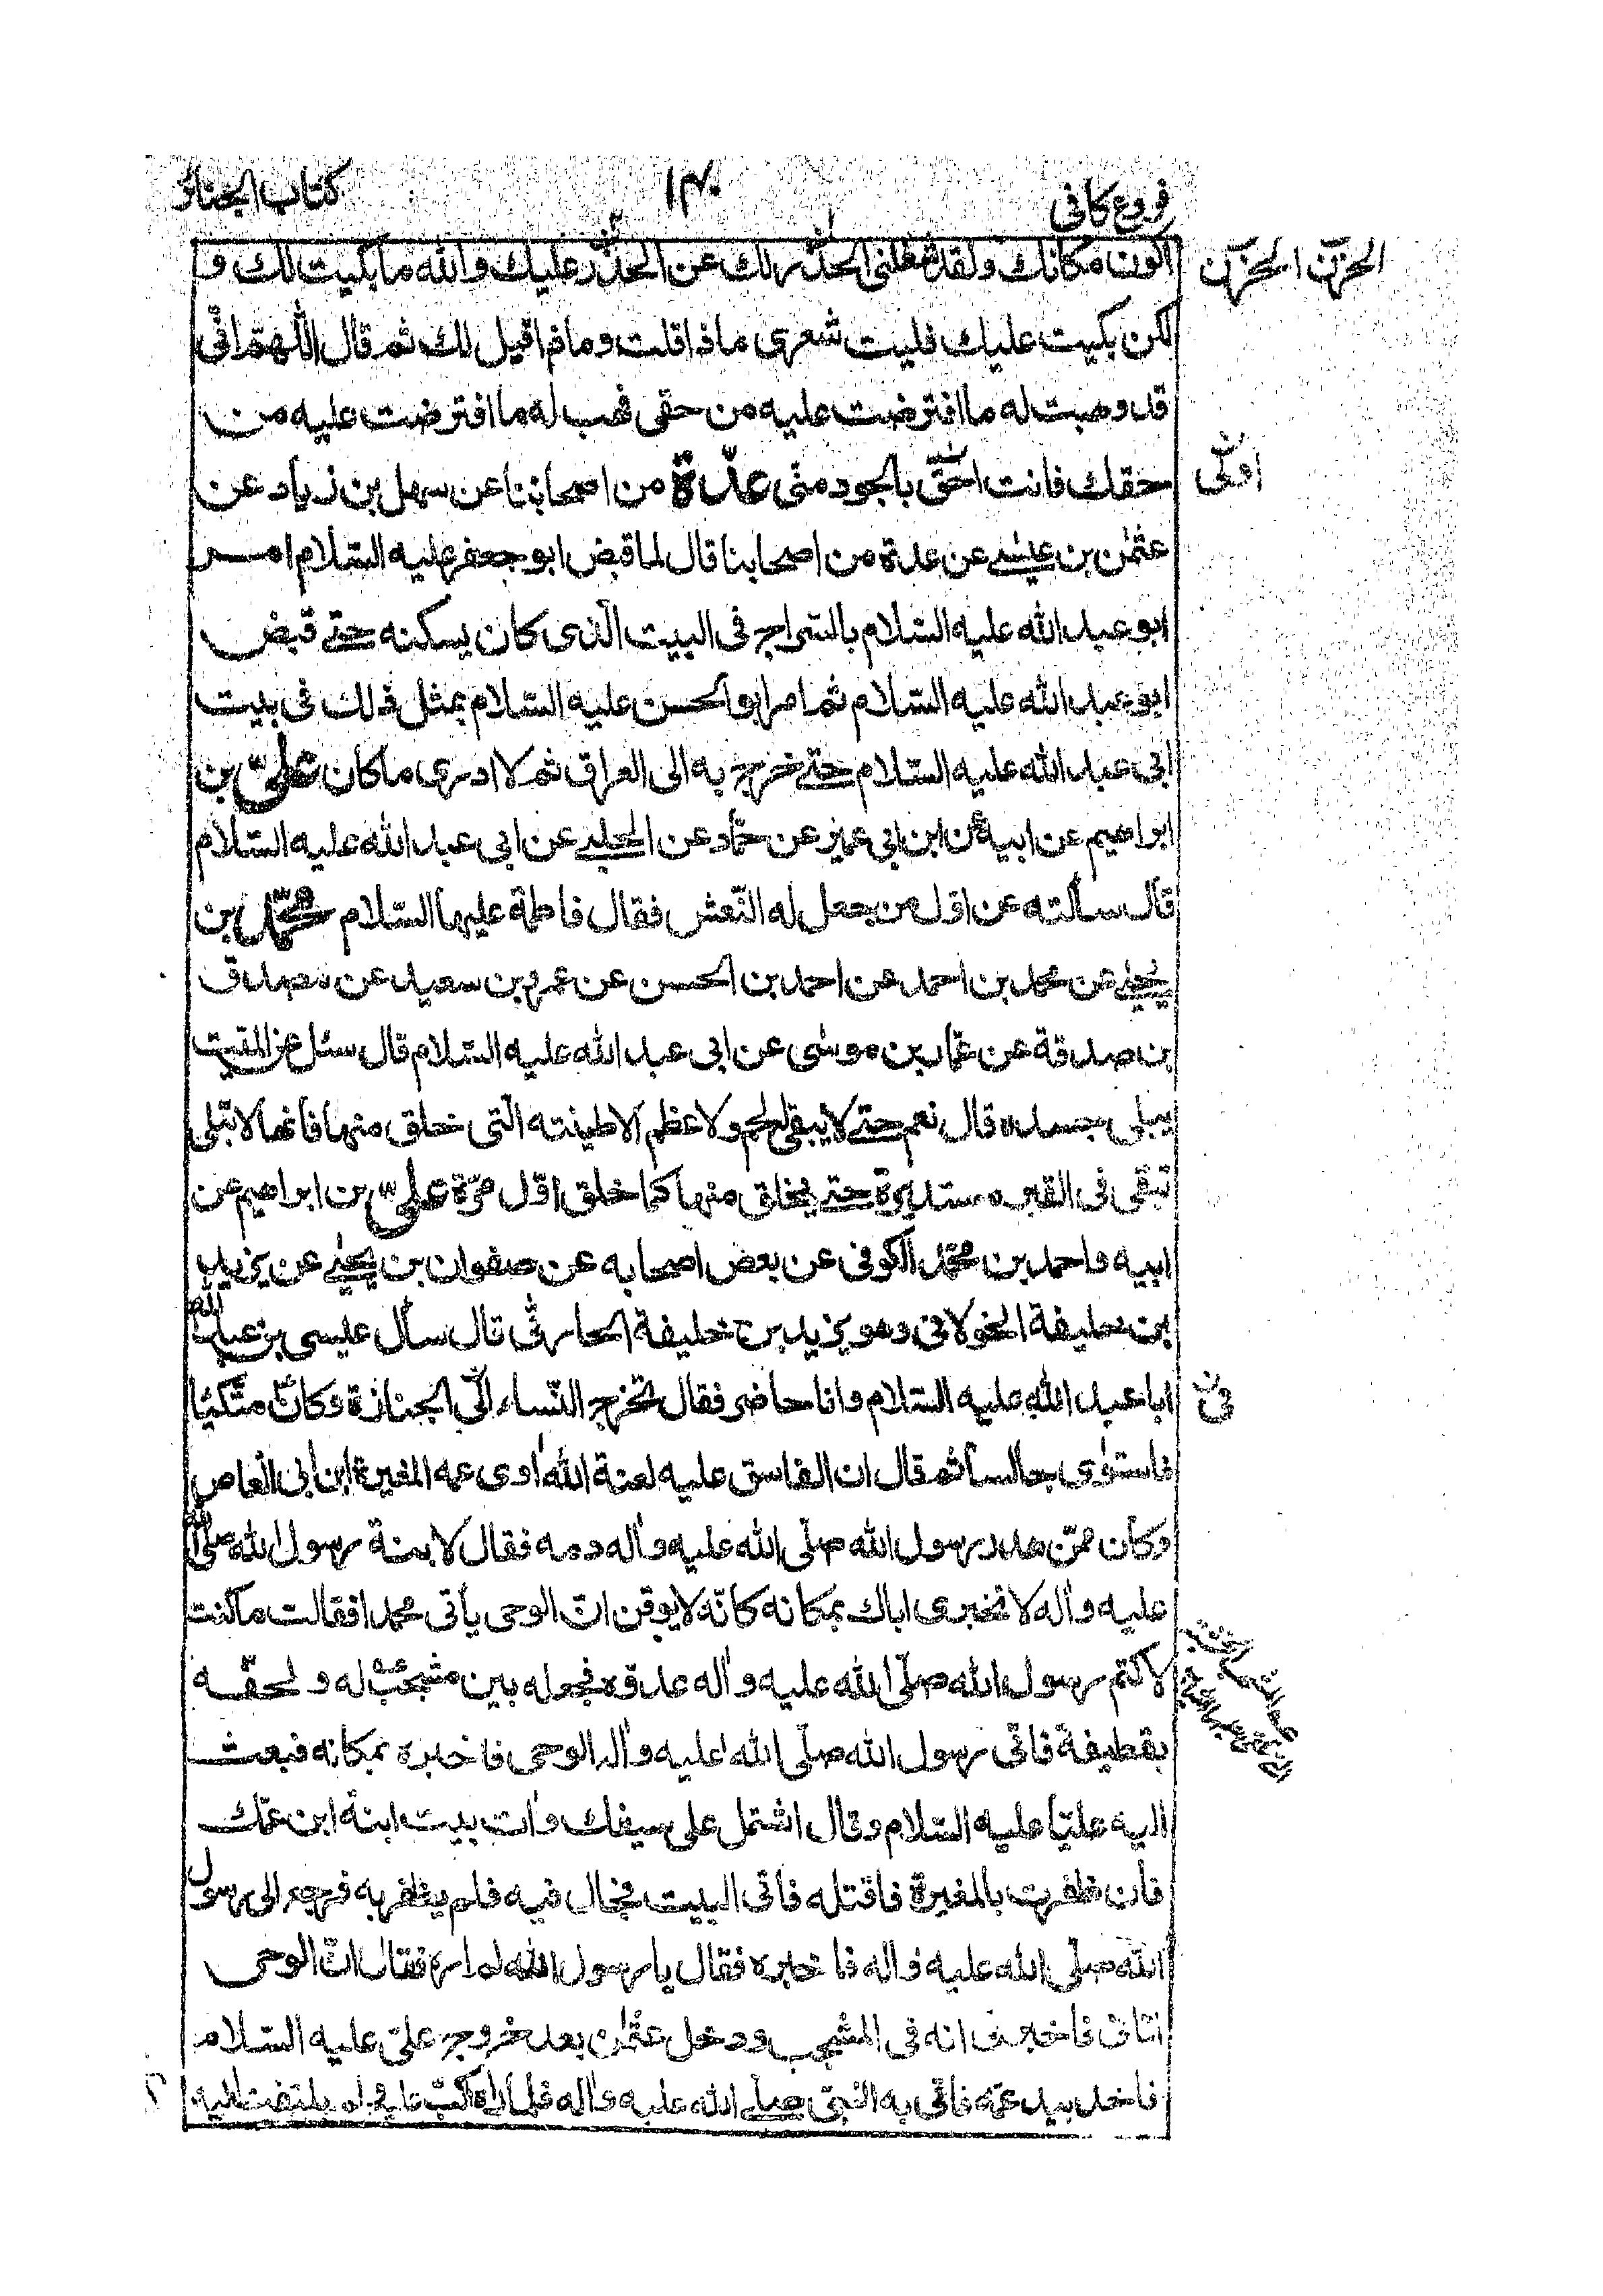 فروع کافی
۱۳۰
کتاب الجنائز
اکون مکانك ولقد شغلنی الحذر لك عن الحذر علیك والله ما بکیت لك و
الحزن الحزن
لکن بکیت علیك فلیت شعری ماذا قلت وماذا قیل لك ثم قال اللّهمّ انّی
قد وهبت له ما افترضت علیه من حقی فهب له ما افترضت علیه من
حقك فانت احقّ بالجود منّی عدّة من اصحابنا عن سهل بن زیاد عن
اولی
عثمٰن بن عیسٰے عن عدة من اصحابنا قال لما قبض ابو جعفر علیه السّلام امر
ابو عبد الله علیه السّلام بالسّراج فی البیت الّذی کان یسکنه حتّے قبض
ابو عبد الله علیه السّلام ثم امر ابو الحسن علیه السّلام بمثل ذلك فی بیت
ابی عبد الله علیه السّلام حتّے خرج به الی العراق ثم لا ادری ما کان علیّ بن
ابراهیم عن ابیه عن ابن ابی عمیر عن حمّاد عن الحلبے عن ابی عبد الله علیه السّلام
قال سألته عن اوّل من جعل له النّعش فقال فاطمة علیها السّلام محمّد بن
یحیٰے عن محمد بن احمد عن احمد بن الحسن عن عمرو بن سعید عن مصدق
بن صدقة عن عمّار بن موسٰی عن ابی عبد الله علیه السّلام قال سئل عن المیّت
یبلی جسده قال نعم حتّے لا یبقی لحم ولا عظم الا طینته الّتی خلق منها فانها لا تبلی
تبقی فی القبر مستدیرة حتّے یخلق منها کما خلق اوّل مرّة علیّ بن ابراهیم عن
ابیه واحمد بن محمّد الکوفی عن بعض اصحابه عن صفوان بن یحیٰے عن یزید
بن خلیفة الخولانی وهو یزید بن خلیفة الحارثی قال سأل عیسی بن عبد الله
ابا عبد الله علیه السّلام وانا حاضر فقال تخرج النّساء الی الجنازة وکان متّکیًا
فی
فاستوٰی جالسًا ثم قال ان الفاسق علیه لعنة الله اٰوی عمه المغیرة ابن ابی العاص
وکان ممّن هدر رسول الله صلّی الله علیه واٰله دمه فقال لابنة رسول الله صلّی الله
علیه واٰله لا تخبری اباك بمکانه کانّه لا یوقن انّ الوحی یأتی محمدا فقالت ما کنت
لاکتم رسول الله صلّی الله علیه واٰله عدوّه فجعله بین مشجب له ولحفه
بقطیفة فاتی رسول الله صلّی الله علیه واٰله الوحی فاخبره بمکانه فبعث
الیه علیًا علیه السّلام وقال اشتمل علی سیفك وات بیت ابنة ابن عمّك
فان ظفرت بالمغیرة فاقتله فاتی البیت فجال فیه فلم یظفر به فرجع الی رسول
الله صلّی الله علیه واٰله فاخبره فقال یا رسول الله لم اره فقال انّ الوحی
اتانی فاخبرنی انه فی المشجب ودخل عثمٰن بعد خروج علیّ علیه السّلام
فاخذ بید عمّه فاتی به النبّی صلّے الله علیه واٰله فلما راٰه اکبّ علیه ولم یلتفت الیه